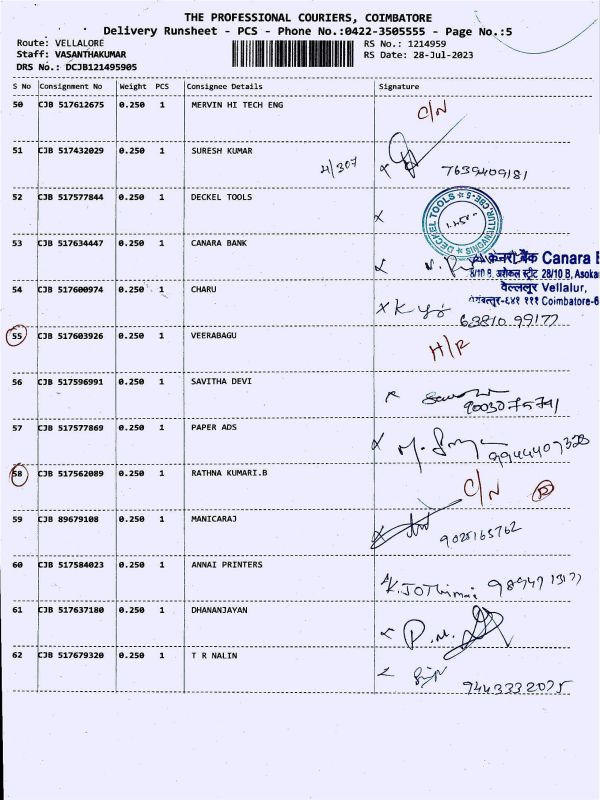 THE PROFESSIONAL COURIERS, COIMBATORE
Delivery Runsheet - PCS - Phone No.:0422-3505555 - Page No.:5
Route: VELLALORE
RS No.: 1214959
Staff: VASANTHAKUMAR
RS Date: 28-Jul-2023
DRS No.: DCJB121495905
S No Consignment No Weight PCS Consignee Details Signature
50 CJB 517612675 0.250 1 MERVIN HI TECH ENG C/N
51 CJB 517432029 0.250 1 SURESH KUMAR 4/307 7639409181
52 CJB 517577844 0.250 1 DECKEL TOOLS X
DECKEL TOOLS
SINGANALLUR, CBE-5
53 CJB 517634447 0.250 1 CANARA BANK
केनरा बैंक Canara B
8/10 B, अशोकन स्ट्रीट 28/10 B, Asoka
वेल्ललूर Vellalur,
कोयंबत्तूर-६४१ १११ Coimbatore-6
54 CJB 517600974 0.250 1 CHARU
63810 99177
55 CJB 517603926 0.250 1 VEERABAGU H/R
56 CJB 517596991 0.250 1 SAVITHA DEVI
9003075791
57 CJB 517577869 0.250 1 PAPER ADS
9944407328
58 CJB 517562089 0.250 1 RATHNA KUMARI.B C/N
59 CJB 89679108 0.250 1 MANICARAJ
9028165762
60 CJB 517584023 0.250 1 ANNAI PRINTERS
61 CJB 517637180 0.250 1 DHANANJAYAN
62 CJB 517679320 0.250 1 T R NALIN
9443332075